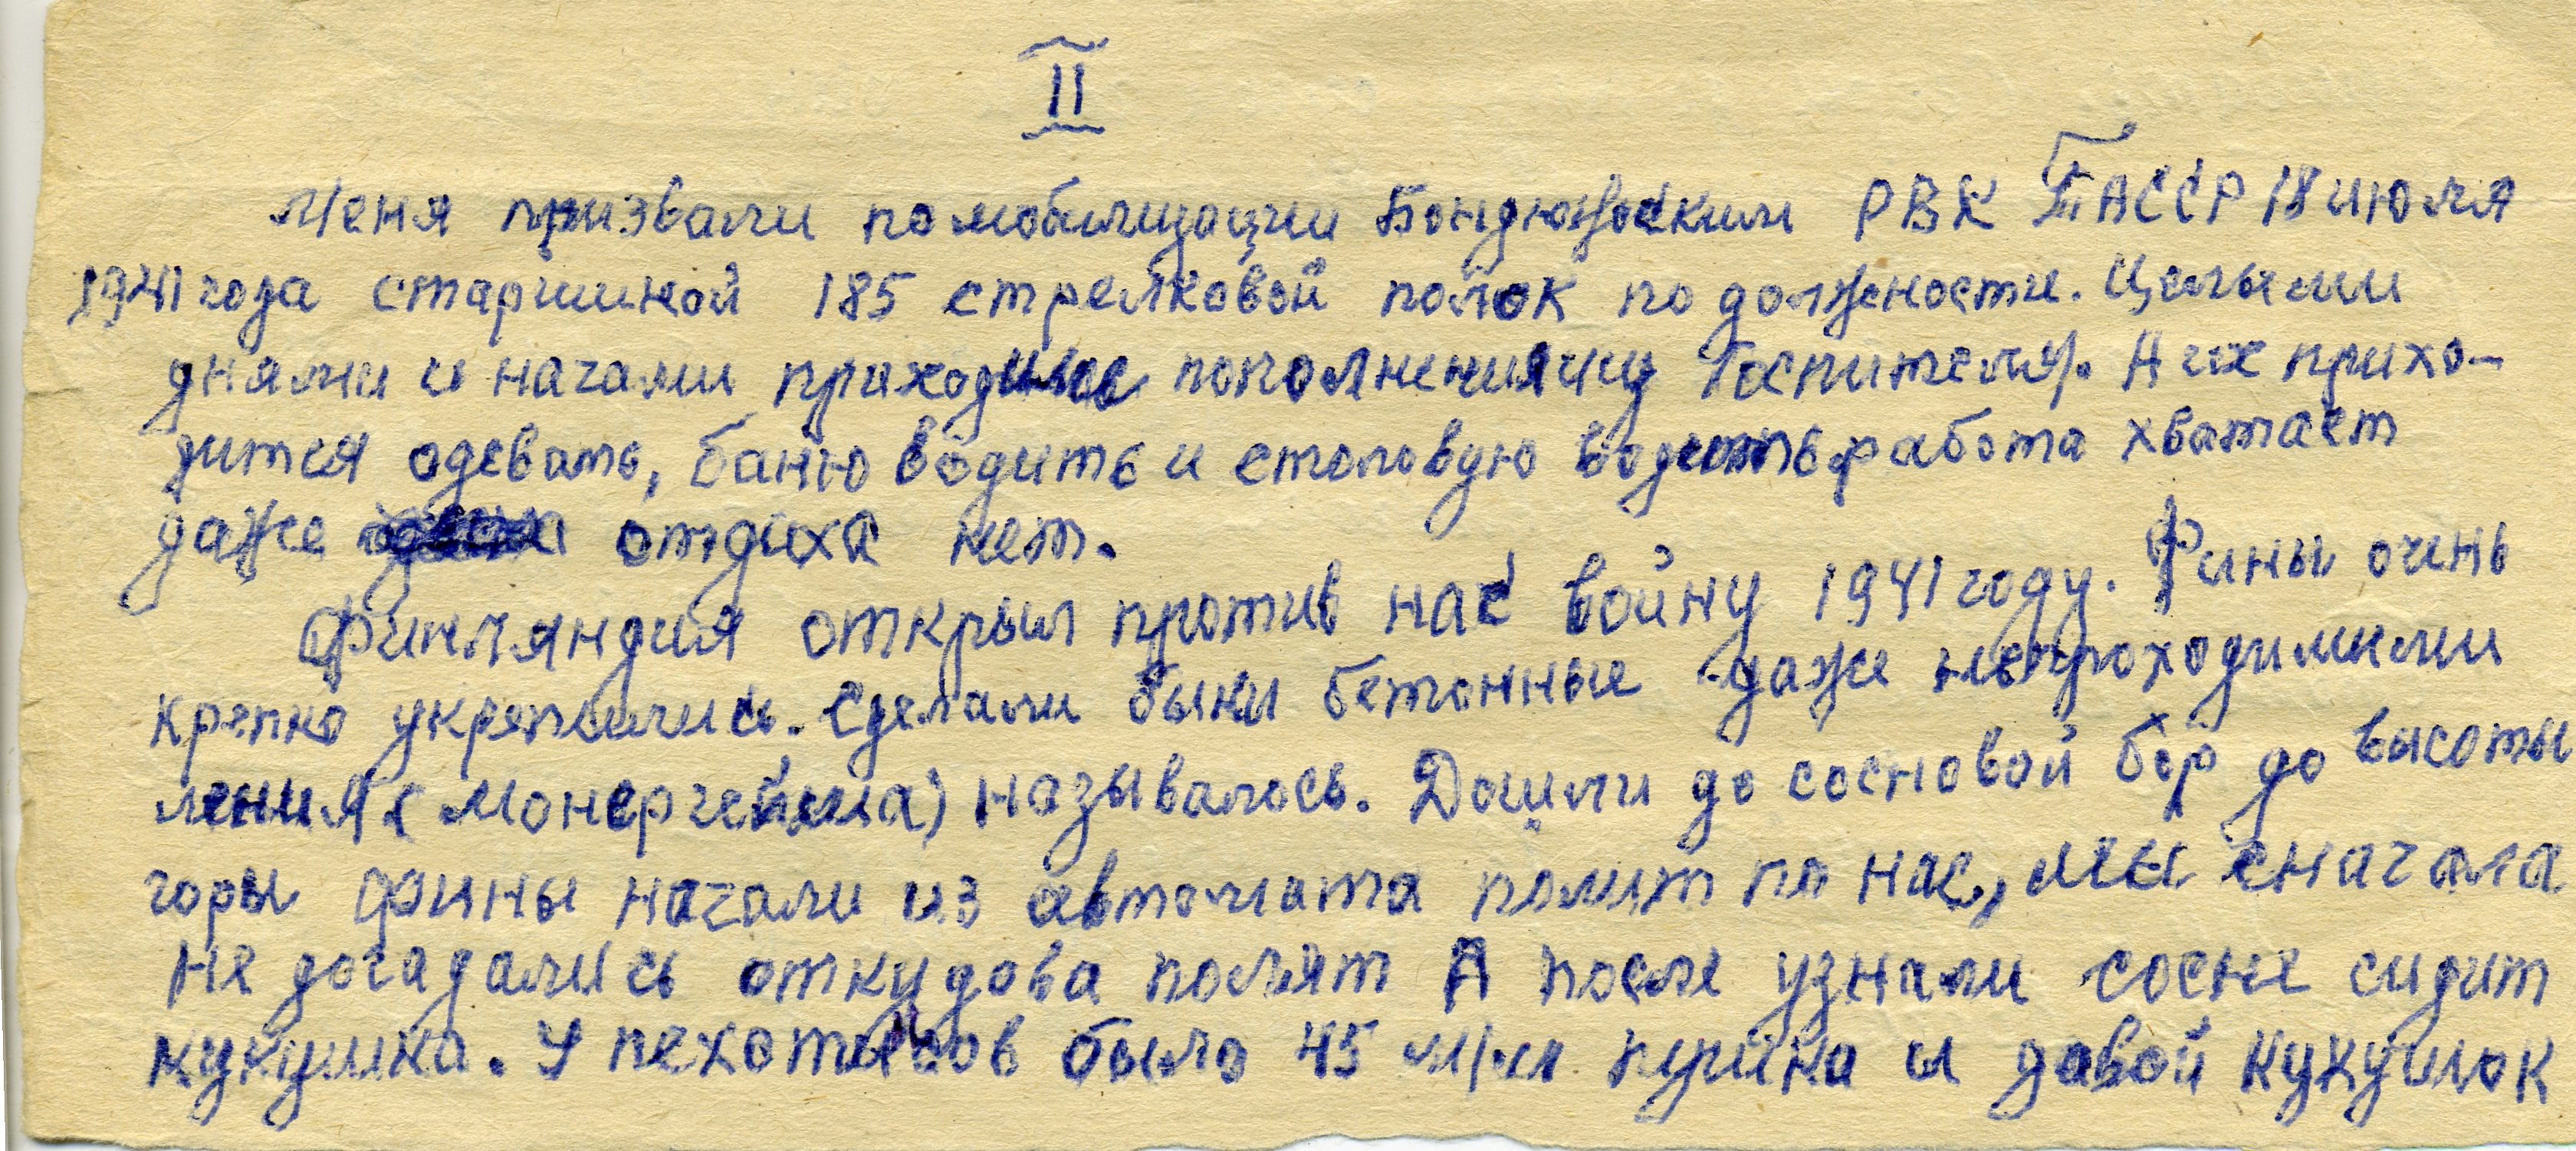 II
Меня призвали по мобилизации Бондюжским РВК ТАССР 18 июля
1941 года старшиной 185 стрелковой полок по должности. Целыми
днями и начали приходить пополнения из Госпителя. Них прихо-
дится одевать, баню водить и столовую водить работа хватает
даже отдиха нет.
Финляндия открыл против нас войну 1941 году. Фины очень
крепко укрепились. Сделали быки бетонные даже непроходимыми
ления (Монергейма) называлось. Дошли до сосновой бор до высоты
горы фины начали из автомата полит по нас, мы сначала
не догадались откудова полят А после узнали сосне сидит
кукушка. У пехотинсов было 45 м/м пушка и давой кукушок